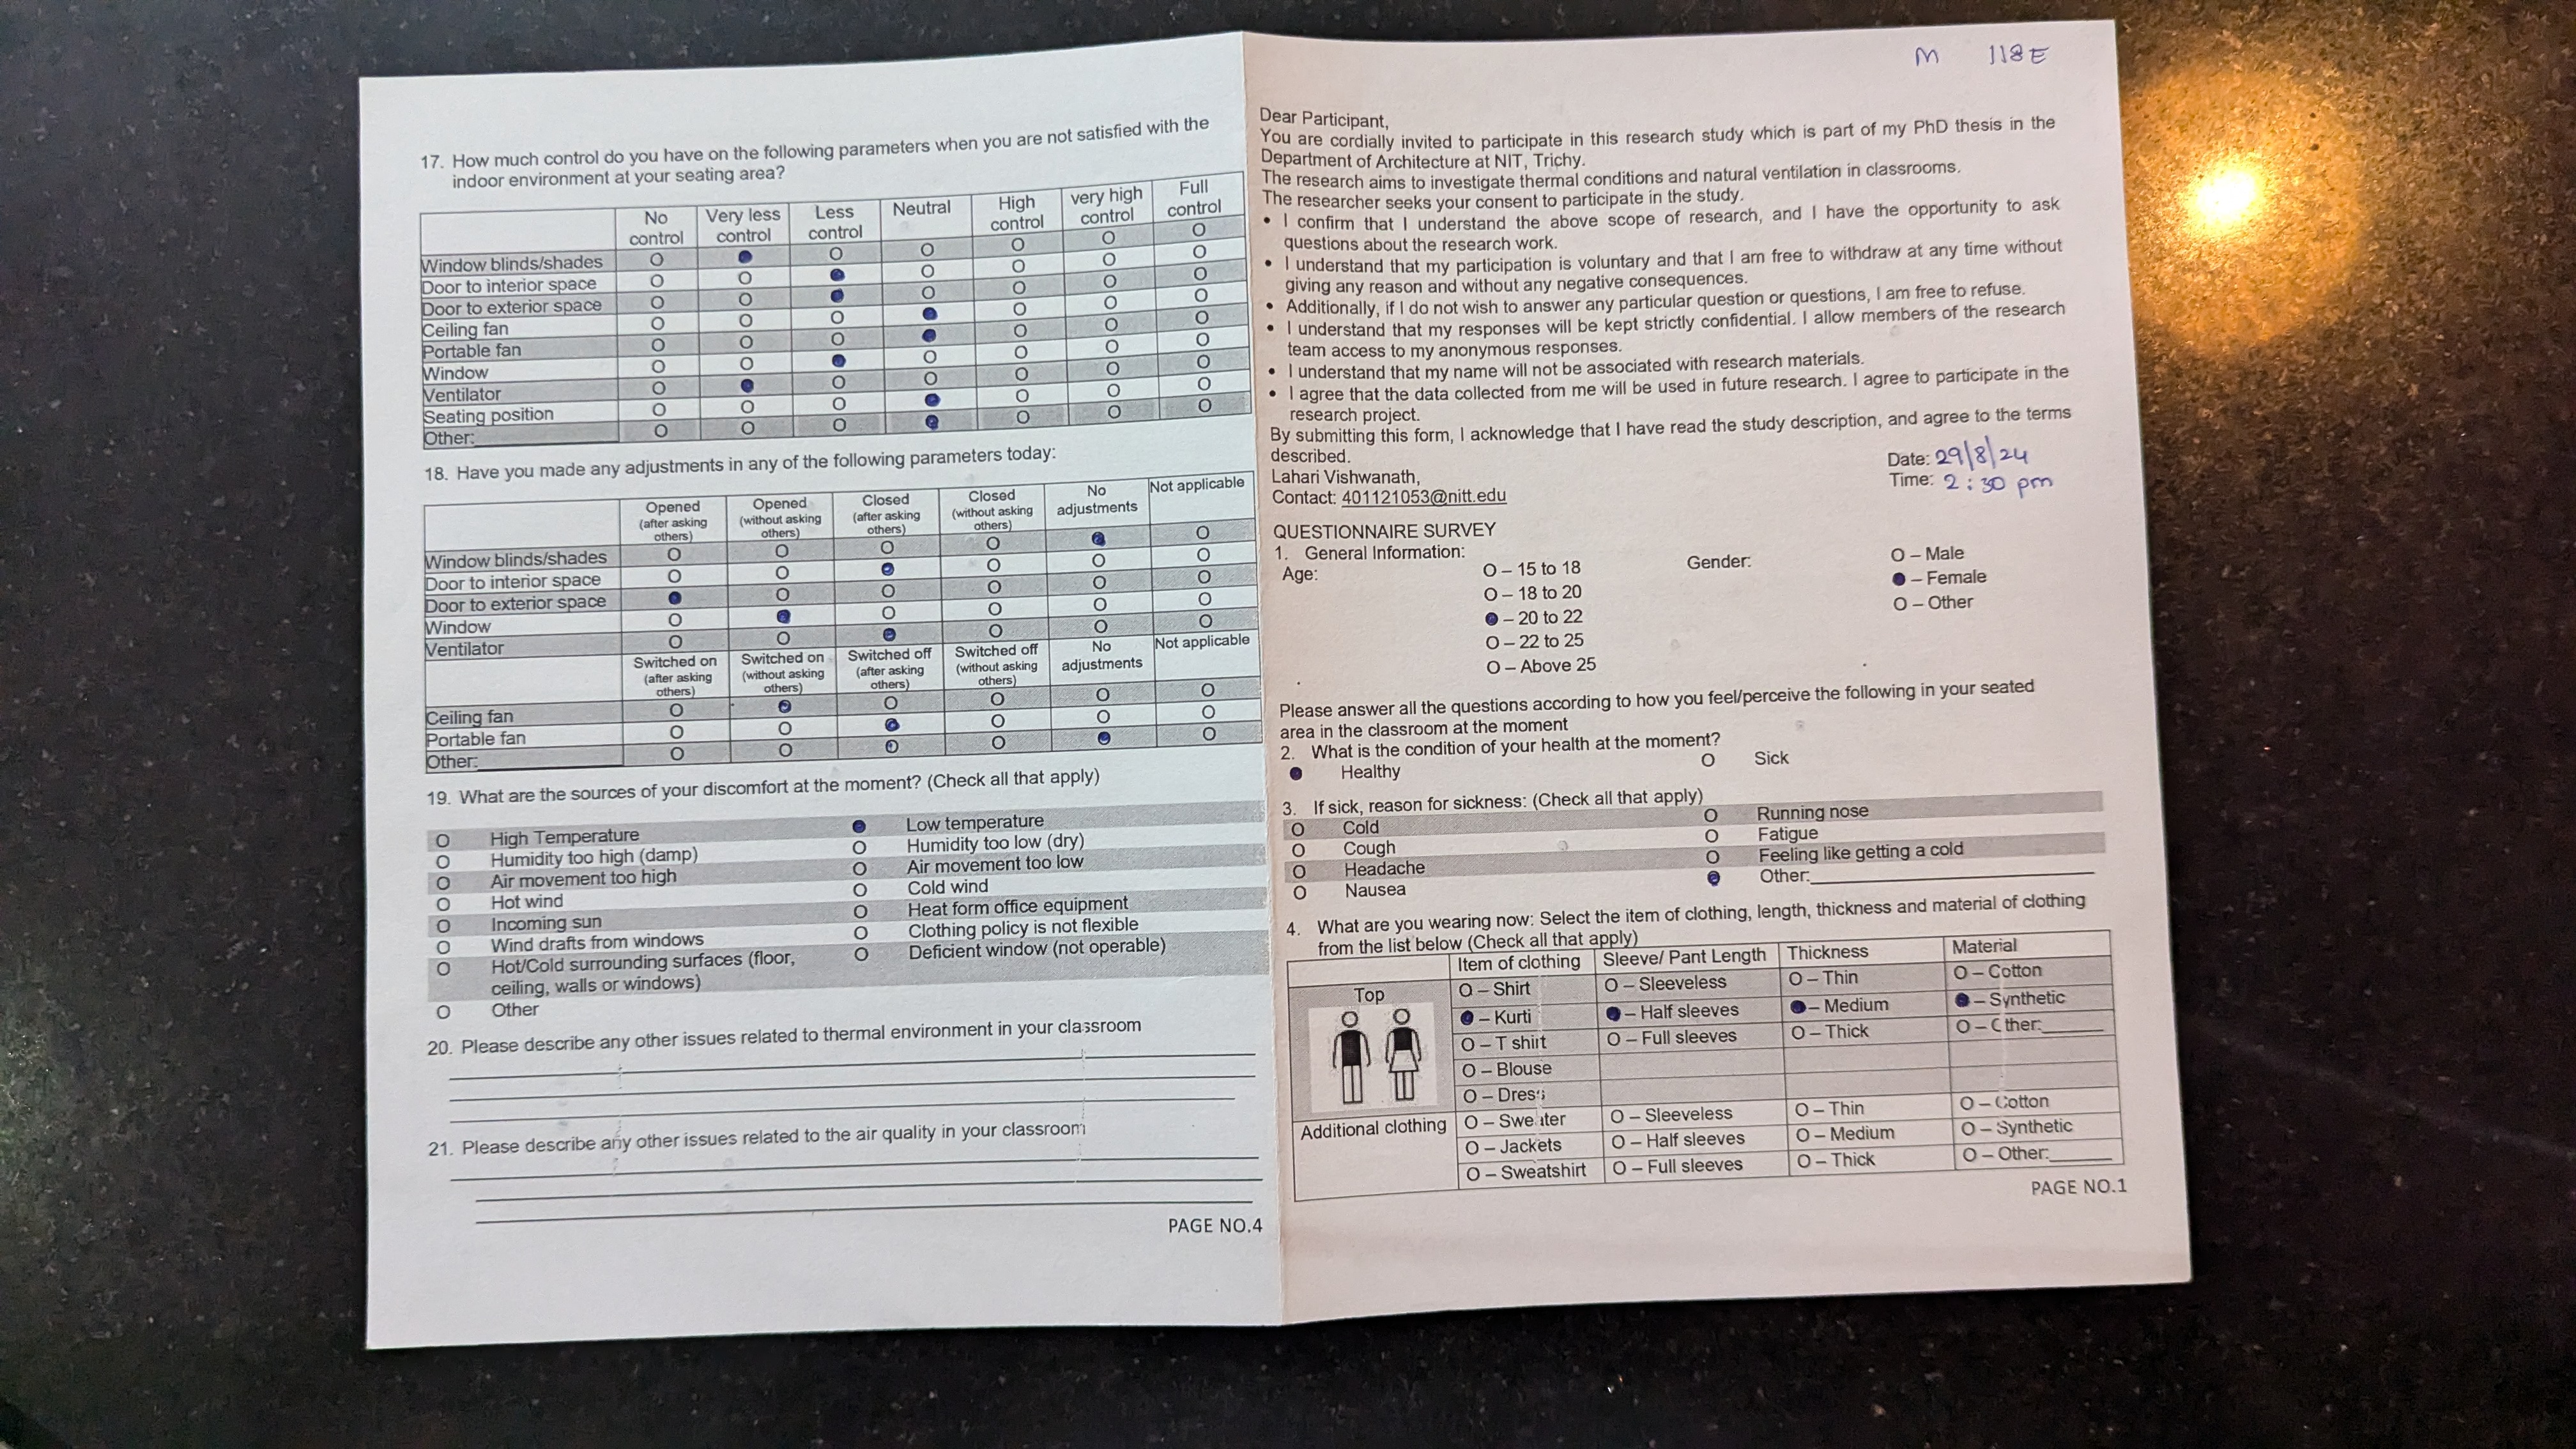 17. How much control do you have on the following parameters when you are not satisfied with the
indoor environment at your seating area?
No control Very less control Less control Neutral High control very high control Full control
Window blinds/shades O ● O O O O O
Door to interior space O O ● O O O O
Door to exterior space O O ● O O O O
Ceiling fan O O O ● O O O
Portable fan O O O ● O O O
Window O O ● O O O O
Ventilator O ● O O O O O
Seating position O O O ● O O O
Other:________ O O O ● O O O
18. Have you made any adjustments in any of the following parameters today:
Opened (after asking others) Opened (without asking others) Closed (after asking others) Closed (without asking others) No adjustments Not applicable
Window blinds/shades O O O O ● O
Door to interior space O O ● O O O
Door to exterior space ● O O O O O
Window O ● O O O O
Ventilator O O ● O O O
Switched on (after asking others) Switched on (without asking others) Switched off (after asking others) Switched off (without asking others) No adjustments Not applicable
Ceiling fan O ● O O O O
Portable fan O O ● O O O
Other:________ O O O O ● O
19. What are the sources of your discomfort at the moment? (Check all that apply)
O High Temperature ● Low temperature
O Humidity too high (damp) O Humidity too low (dry)
O Air movement too high O Air movement too low
O Hot wind O Cold wind
O Incoming sun O Heat form office equipment
O Wind drafts from windows O Clothing policy is not flexible
O Hot/Cold surrounding surfaces (floor, O Deficient window (not operable)
ceiling, walls or windows)
O Other
20. Please describe any other issues related to thermal environment in your classroom
21. Please describe any other issues related to the air quality in your classroom
PAGE NO.4
M 118E
Dear Participant,
You are cordially invited to participate in this research study which is part of my PhD thesis in the
Department of Architecture at NIT, Trichy.
The research aims to investigate thermal conditions and natural ventilation in classrooms.
The researcher seeks your consent to participate in the study.
• I confirm that I understand the above scope of research, and I have the opportunity to ask
questions about the research work.
• I understand that my participation is voluntary and that I am free to withdraw at any time without
giving any reason and without any negative consequences.
• Additionally, if I do not wish to answer any particular question or questions, I am free to refuse.
• I understand that my responses will be kept strictly confidential. I allow members of the research
team access to my anonymous responses.
• I understand that my name will not be associated with research materials.
• I agree that the data collected from me will be used in future research. I agree to participate in the
research project.
By submitting this form, I acknowledge that I have read the study description, and agree to the terms
described.
Lahari Vishwanath,
Contact: 401121053@nitt.edu
Date: 29/8/24
Time: 2:30 pm
QUESTIONNAIRE SURVEY
1. General Information:
Age:
O – 15 to 18
O – 18 to 20
● – 20 to 22
O – 22 to 25
O – Above 25
Gender:
O – Male
● – Female
O – Other
Please answer all the questions according to how you feel/perceive the following in your seated
area in the classroom at the moment
2. What is the condition of your health at the moment?
● Healthy O Sick
3. If sick, reason for sickness: (Check all that apply)
O Cold O Running nose
O Cough O Fatigue
O Headache O Feeling like getting a cold
O Nausea ● Other:________
4. What are you wearing now: Select the item of clothing, length, thickness and material of clothing
from the list below (Check all that apply)
Item of clothing Sleeve/ Pant Length Thickness Material
Top O – Shirt O – Sleeveless O – Thin O – Cotton
● – Kurti ● – Half sleeves ● – Medium ● – Synthetic
O – T shirt O – Full sleeves O – Thick O – Other:________
O – Blouse
O – Dress
Additional clothing O – Sweater O – Sleeveless O – Thin O – Cotton
O – Jackets O – Half sleeves O – Medium O – Synthetic
O – Sweatshirt O – Full sleeves O – Thick O – Other:________
PAGE NO.1